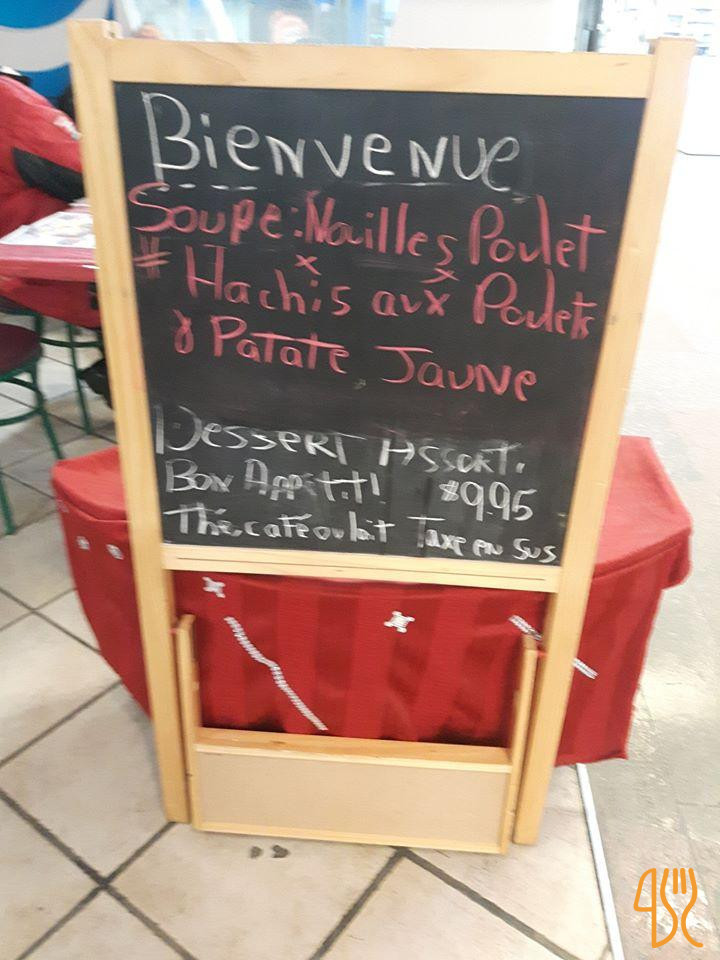 Bienvenue
Soupe: Nouilles Poulet
# Hachis aux Poulets
& Patate Jaune
Dessert Assort.
Bon Appétit! $9.95
Thé, café ou lait Taxe en sus